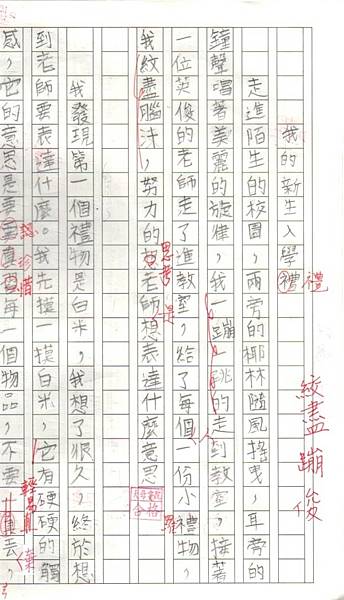 我的新生入學禮
走進陌生的校園，兩旁的椰林隨風搖曳，耳旁的
鐘聲唱著美麗的旋律，我一蹦一跳的走到教室，接著
一位英俊的老師走了進教室，給了每個人一份小禮物，
我絞盡腦汁，努力的思考老師是想表達什麼意思
我發現第一個禮物是白米，我想了很久，終於想
到老師要表達什麼。我先摸一摸白米，它有硬硬的觸
感，它的意思是要認真珍惜每一個物品，不要輕易丟棄，
禮
絞盡蹦俊
合格